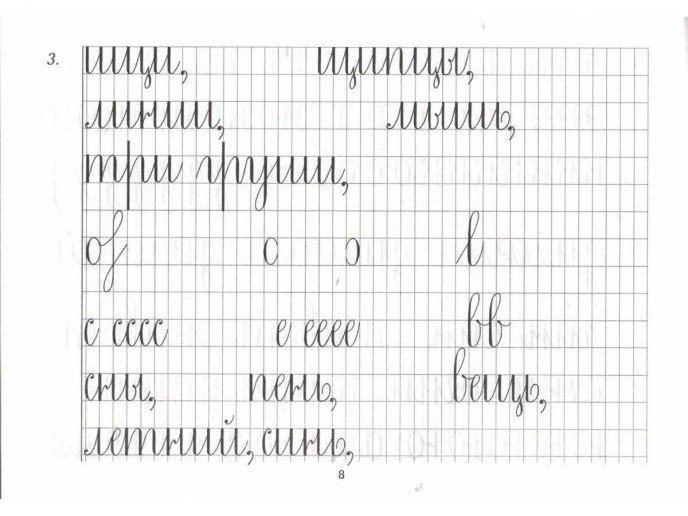 3. ищи, щипцы,
линии, мышь,
три груши,
с сссс е ееее вв
сны, пень, вещь,
летний, синь,
8